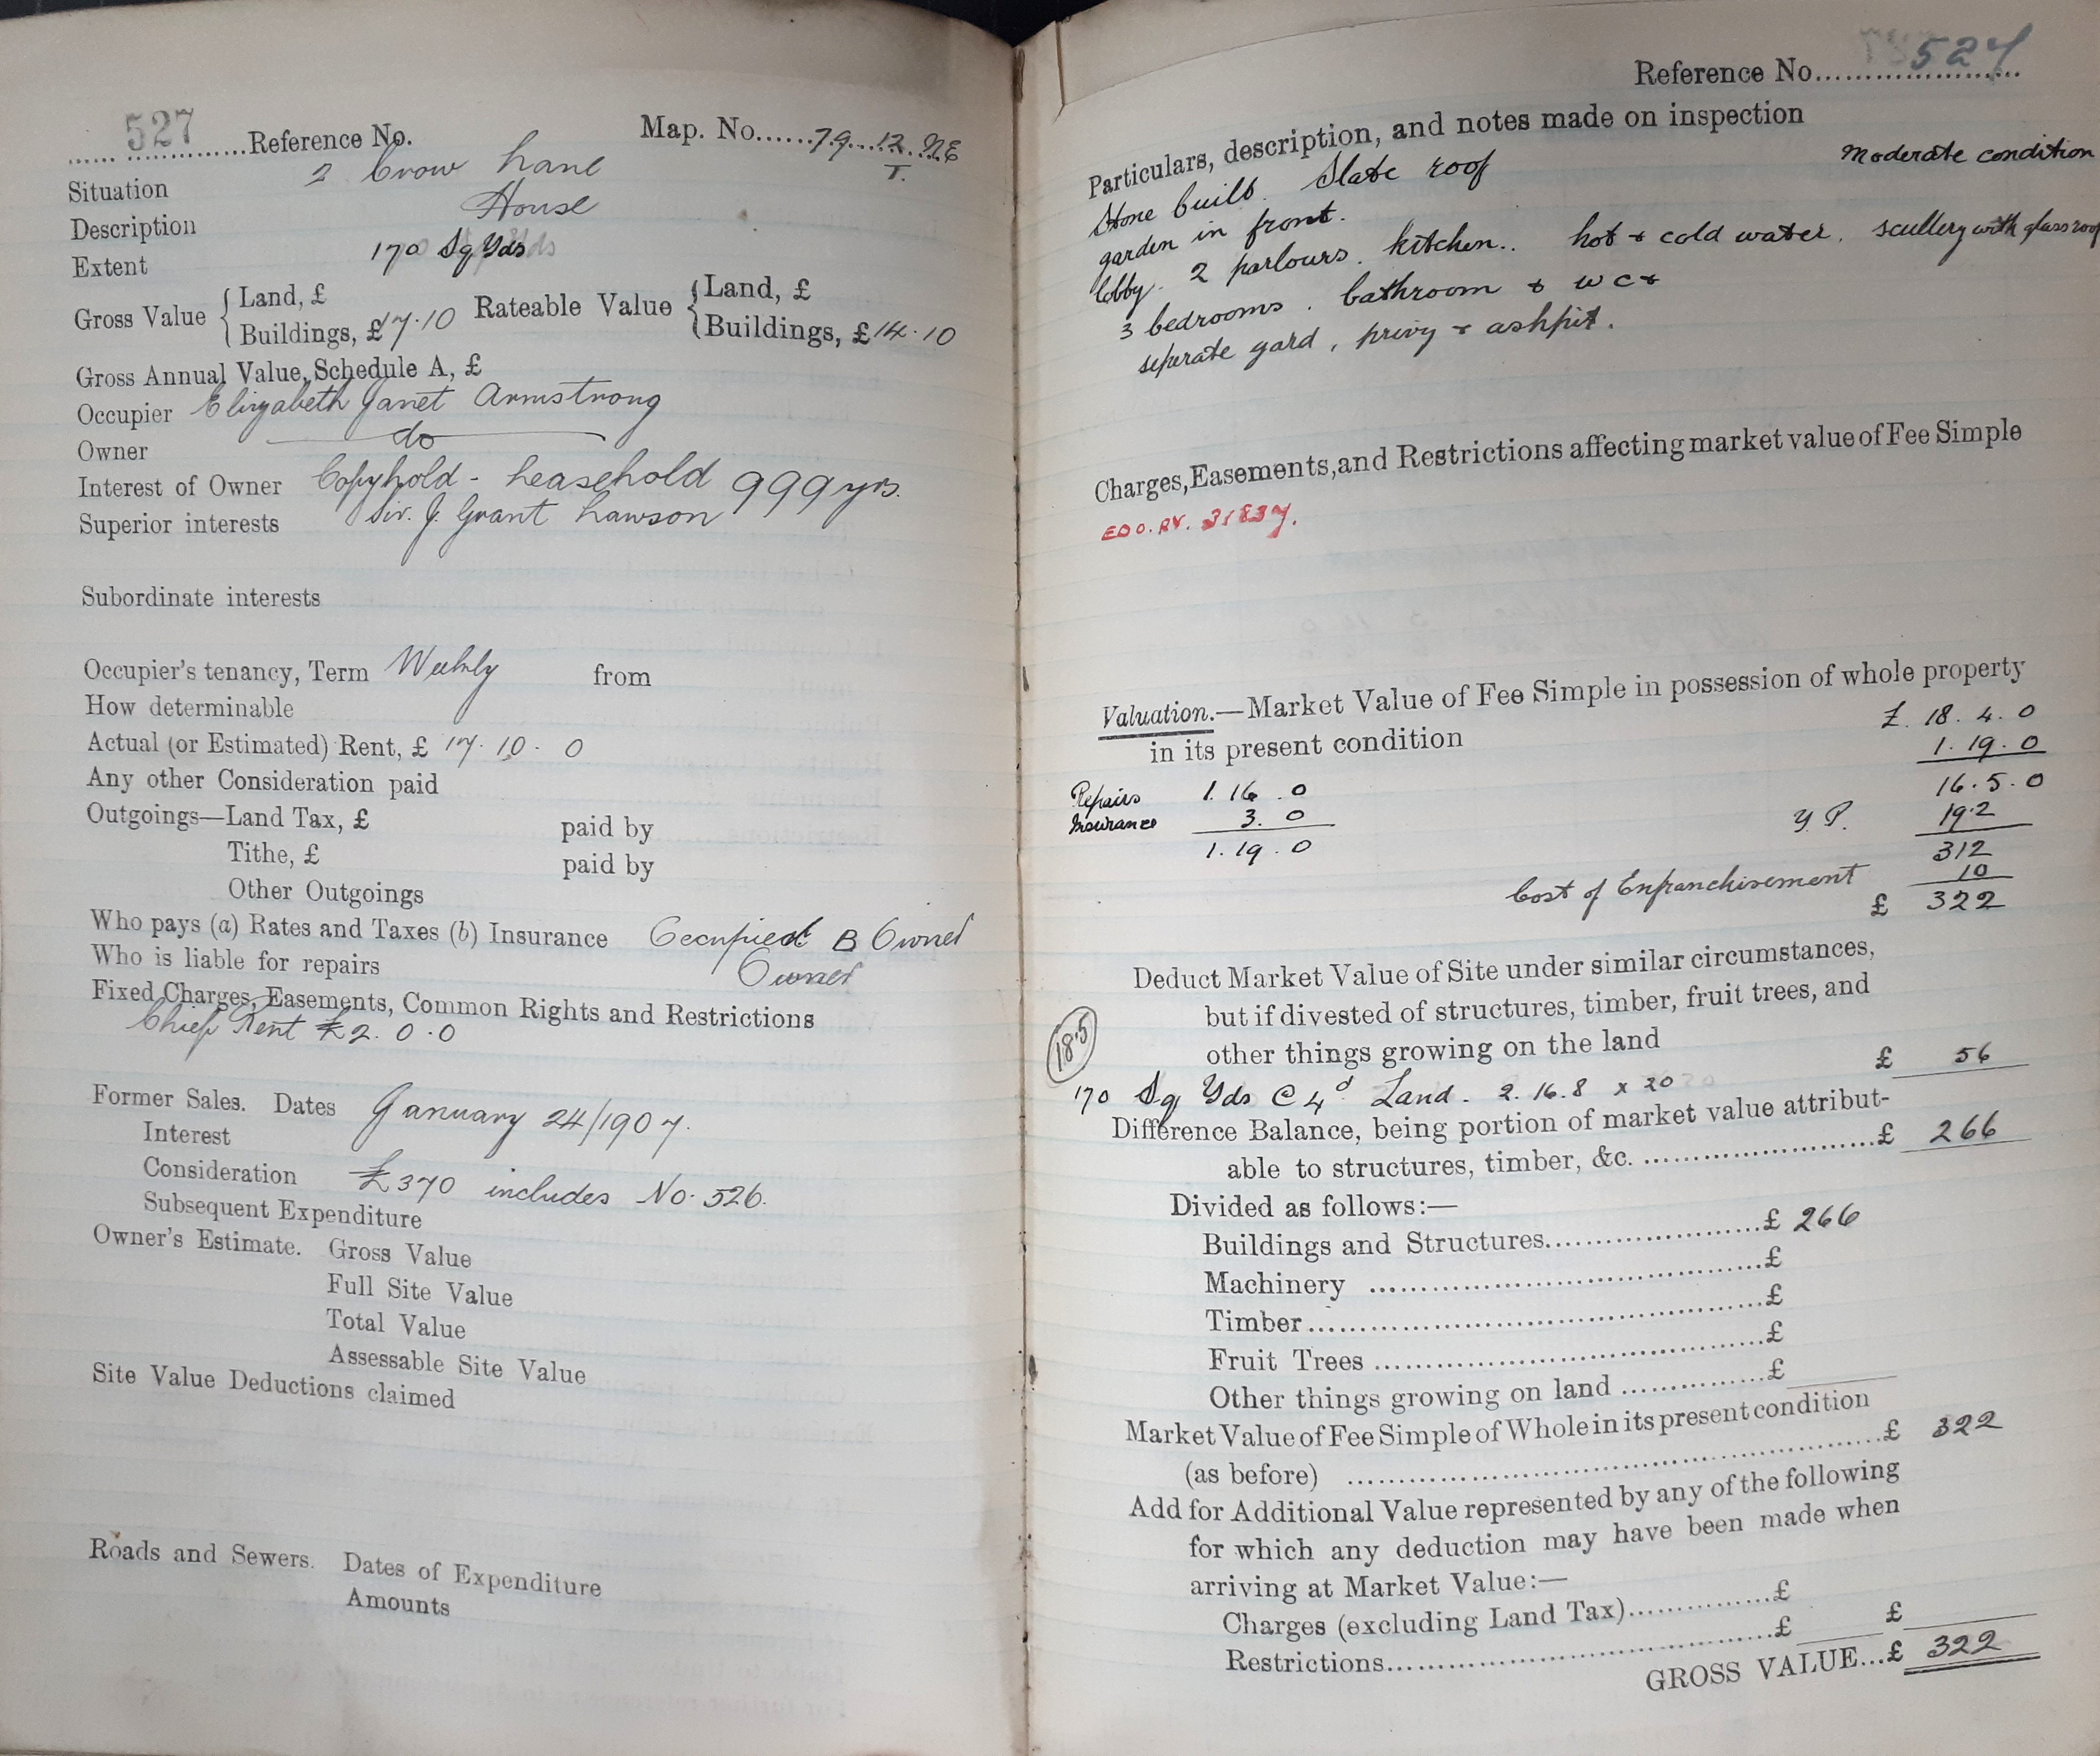 527 Reference No. Map. No. 79. 12. NE
T.
Situation 2 Crow Lane
Description House
Extent 170 Sq Yds
Gross Value { Land, £ Rateable Value { Land, £
Buildings, £17.10 Buildings, £14.10
Gross Annual Value, Schedule A, £
Occupier Elizabeth Janet Armstrong
Owner do
Interest of Owner Copyhold - Leasehold 999 yrs.
Superior interests Sir. J. Grant Lawson
Subordinate interests
Occupier's tenancy, Term Weekly from
How determinable
Actual (or Estimated) Rent, £ 17. 10. 0
Any other Consideration paid
Outgoings—Land Tax, £ paid by
Tithe, £ paid by
Other Outgoings
Who pays (a) Rates and Taxes (b) Insurance Occupier B Owner
Who is liable for repairs Owner
Fixed Charges, Easements, Common Rights and Restrictions
Chief Rent £2. 0. 0
Former Sales. Dates January 24/1907.
Interest
Consideration £370 includes No. 526.
Subsequent Expenditure
Owner's Estimate. Gross Value
Full Site Value
Total Value
Assessable Site Value
Site Value Deductions claimed
Roads and Sewers. Dates of Expenditure
Amounts
Reference No. 527
Particulars, description, and notes made on inspection
Stone built. Slate roof Moderate condition
garden in front.
lobby. 2 parlours. kitchen.. hot & cold water. scullery with glass roof
3 bedrooms. bathroom & wc &
seperate yard, privy & ashpit.
Charges, Easements, and Restrictions affecting market value of Fee Simple
EDO. RV. 31837.
Valuation.—Market Value of Fee Simple in possession of whole property
in its present condition £ 18. 4. 0
1. 19. 0
Repairs 1. 16. 0 16. 5. 0
Insurance 3. 0 Y. P. 19.2
1. 19. 0 312
Cost of Enfranchisement 10
£ 322
Deduct Market Value of Site under similar circumstances,
but if divested of structures, timber, fruit trees, and
18.5 other things growing on the land £ 56
170 Sq Yds @ 4d Land. 2. 16. 8 x 20
Difference Balance, being portion of market value attribut-
able to structures, timber, &c. £ 266
Divided as follows:—
Buildings and Structures £ 266
Machinery £
Timber £
Fruit Trees £
Other things growing on land £
Market Value of Fee Simple of Whole in its present condition
(as before) £ 322
Add for Additional Value represented by any of the following
for which any deduction may have been made when
arriving at Market Value:—
Charges (excluding Land Tax) £
Restrictions £ £
GROSS VALUE...£ 322